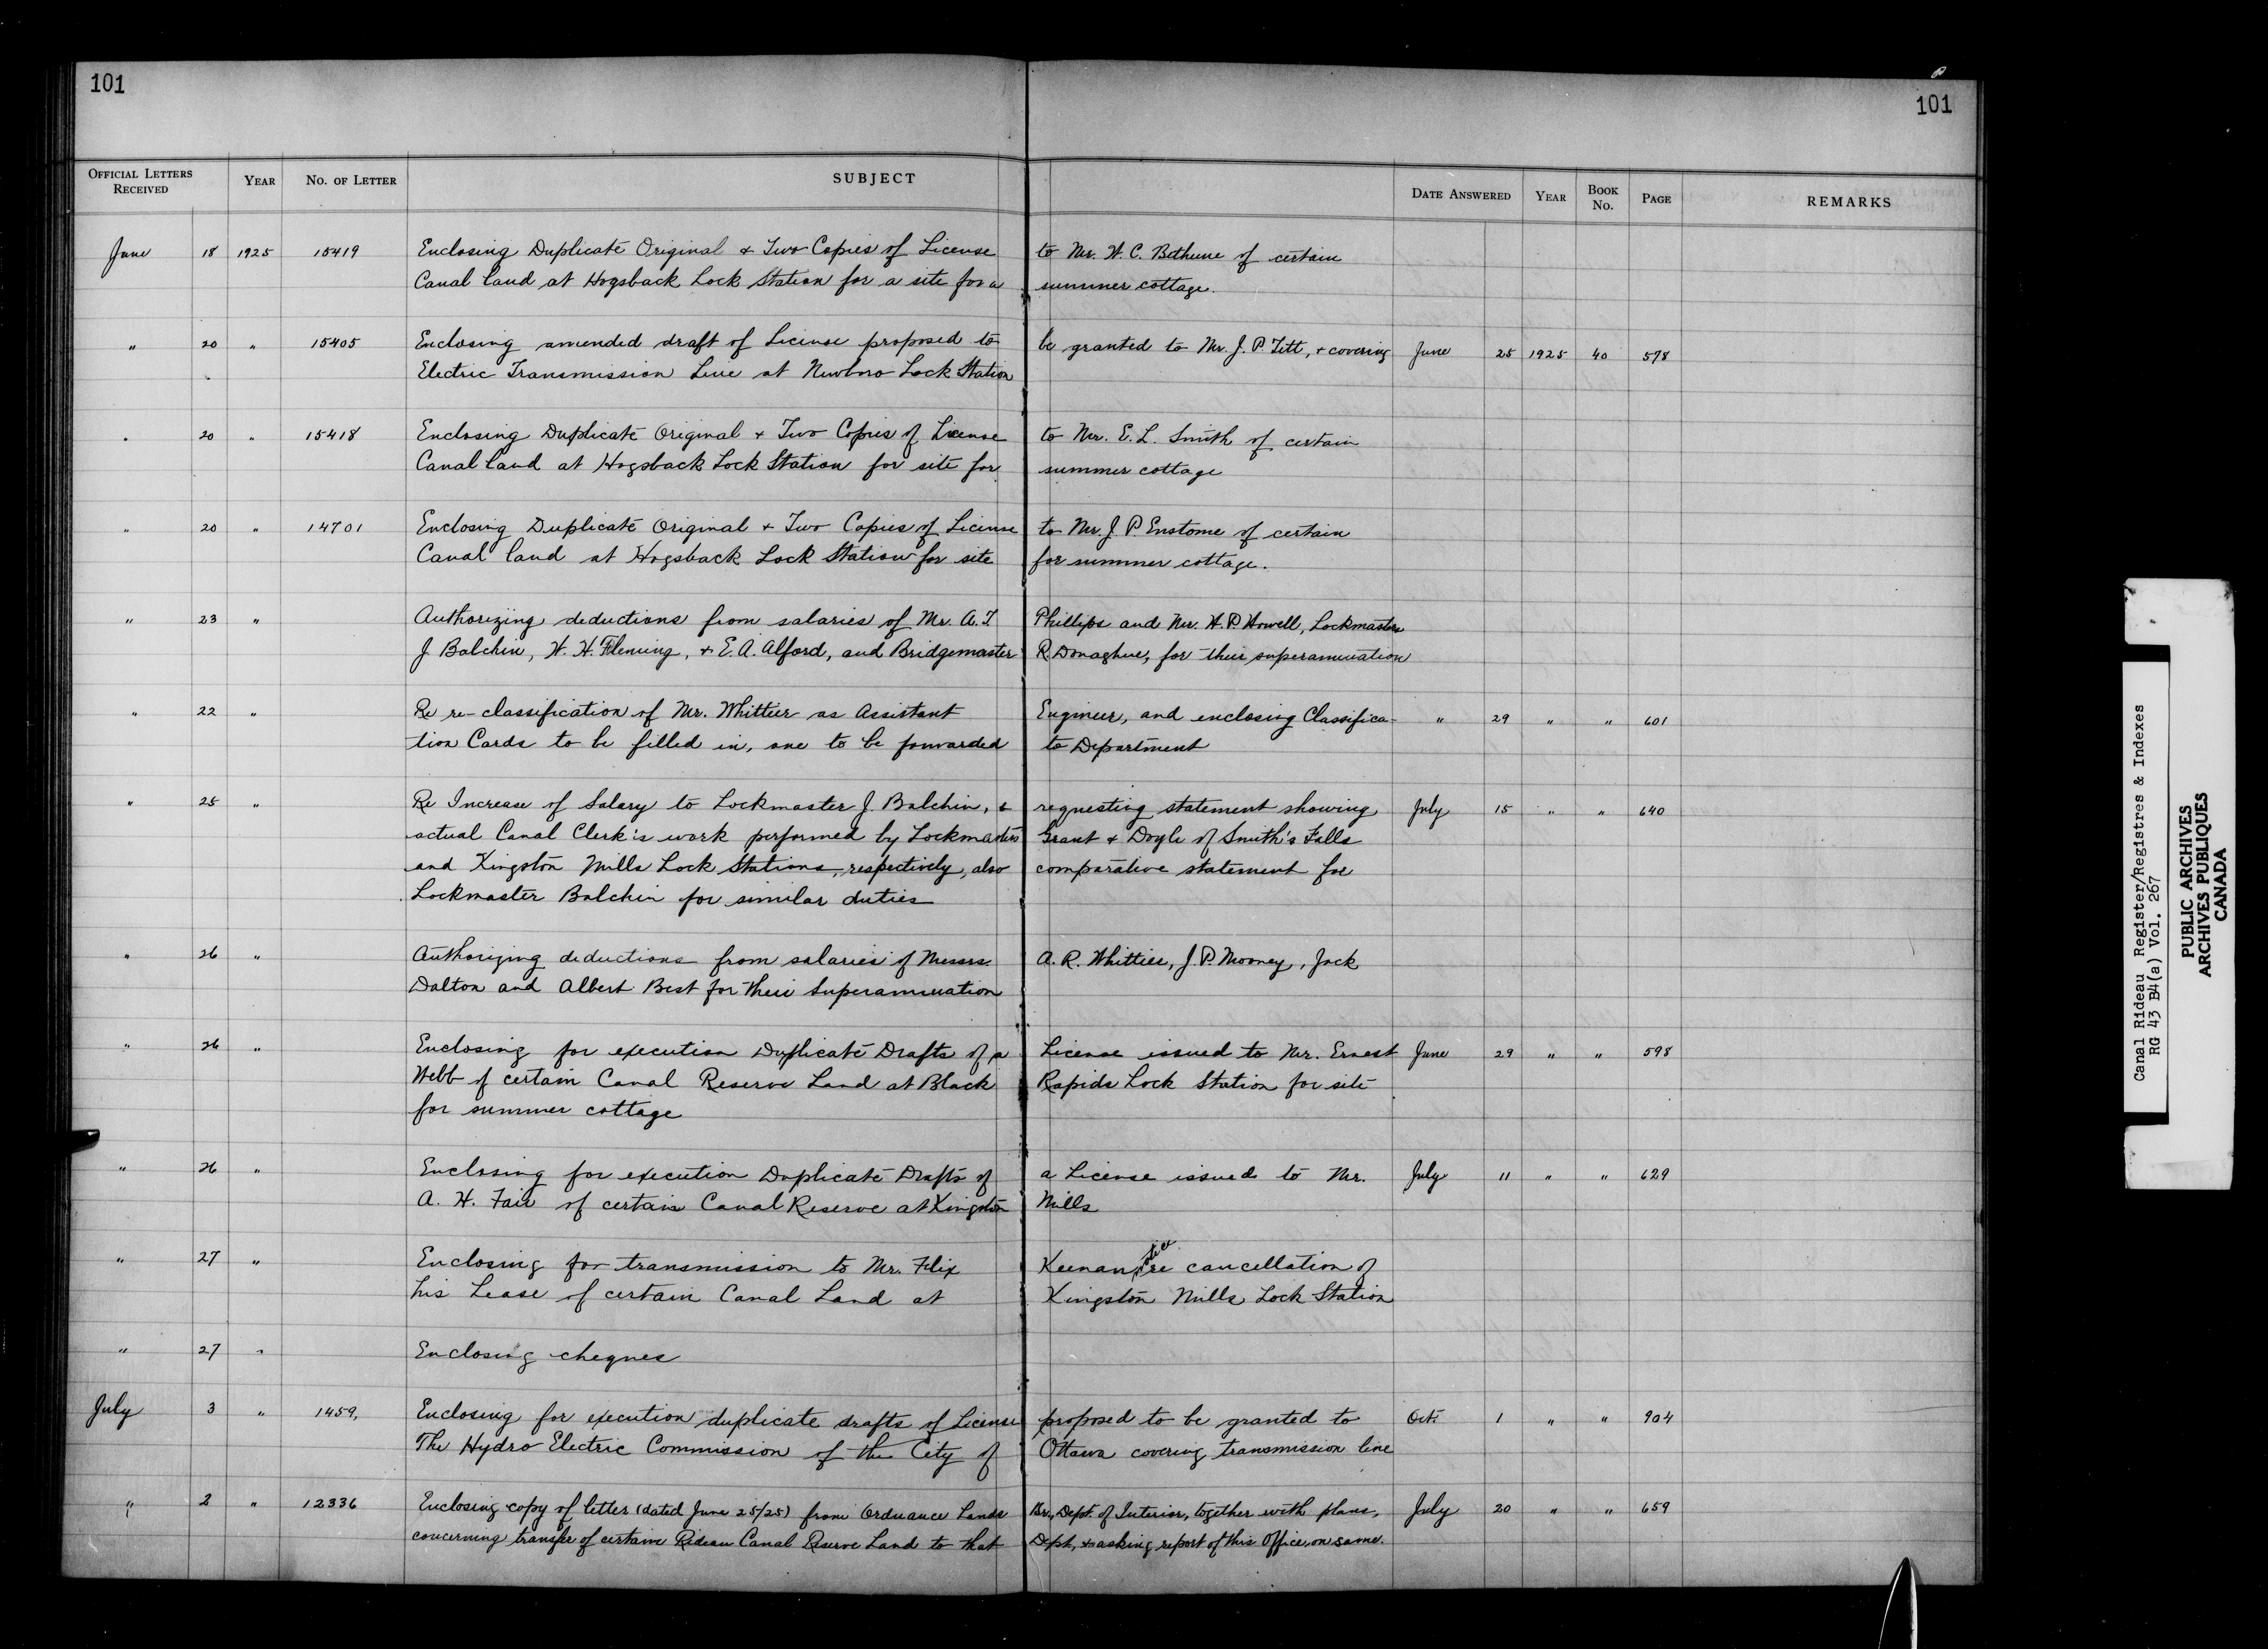 101
101
OFFICIAL LETTERS RECEIVED YEAR NO. OF LETTER SUBJECT DATE ANSWERED YEAR BOOK No. PAGE REMARKS
June 18 1925 15419 Enclosing Duplicate Original & Two Copies of License to Mr. W. C. Bethune of certain
Canal land at Hogsback Lock Station for a site for a summer cottage.
" 20 " 15405 Enclosing amended draft of License proposed to be granted to Mr. J. P. Tett, & covering June 25 1925 40 578
Electric Transmission Line at Newboro Lock Station
" 20 " 15418 Enclosing Duplicate Original & Two Copies of License to Mr. E. L. Smith of certain
Canal land at Hogsback Lock Station for site for summer cottage
" 20 " 14701 Enclosing Duplicate Original & Two Copies of License to Mr. J. P. Enstome of certain
Canal land at Hogsback Lock Station for site for summer cottage.
" 23 " Authorizing deductions from salaries of Mr. A. T. Phillips and Mr. H. P. Howell, Lockmasters
J Balchin, W. H. Fleming, & E. A. Alford, and Bridgemaster R Donaghue, for their superannuation
" 22 " Re re-classification of Mr. Whittier as Assistant Engineer, and enclosing Classifica- " 29 " " 601
tion Cards to be filled in, one to be forwarded to Department
" 25 " Re Increase of Salary to Lockmaster J. Balchin, & requesting statement showing July 15 " " 640
actual Canal Clerk's work performed by Lockmasters Grant & Doyle of Smith's Falls
and Kingston Mills Lock Stations, respectively, also comparative statement for
Lockmaster Balchin for similar duties
" 26 " Authorizing deductions from salaries of Messrs. A. R. Whittier, J. P. Mooney, Jack
Dalton and Albert Best for their Superannuation
" 26 " Enclosing for execution Duplicate Drafts of a License issued to Mr. Ernest June 29 " " 598
Webb of certain Canal Reserve Land at Black Rapids Lock Station for site
for summer cottage
" 26 " Enclosing for execution Duplicate Drafts of a License issued to Mr. July 11 " " 629
A. H. Fair of certain Canal Reserve at Kingston Mills
" 27 " Enclosing for transmission to Mr. Felix Keenan, re cancellation of
his Lease of certain Canal Land at Kingston Mills Lock Station
" 27 " Enclosing cheques
July 3 " 1459, Enclosing for execution duplicate drafts of License proposed to be granted to Oct. 1 " " 904
The Hydro Electric Commission of the City of Ottawa covering transmission line
" 2 " 12336 Enclosing copy of letter (dated June 25/25) from Ordnance Lands Br., Dept. of Interior, together with plans, July 20 " " 659
concerning transfer of certain Rideau Canal Reserve Land to that Dept, & asking report of this Office, on same.
Canal Rideau Register/Registres & Indexes
RG 43 B4(a) Vol. 267
PUBLIC ARCHIVES
ARCHIVES PUBLIQUES
CANADA